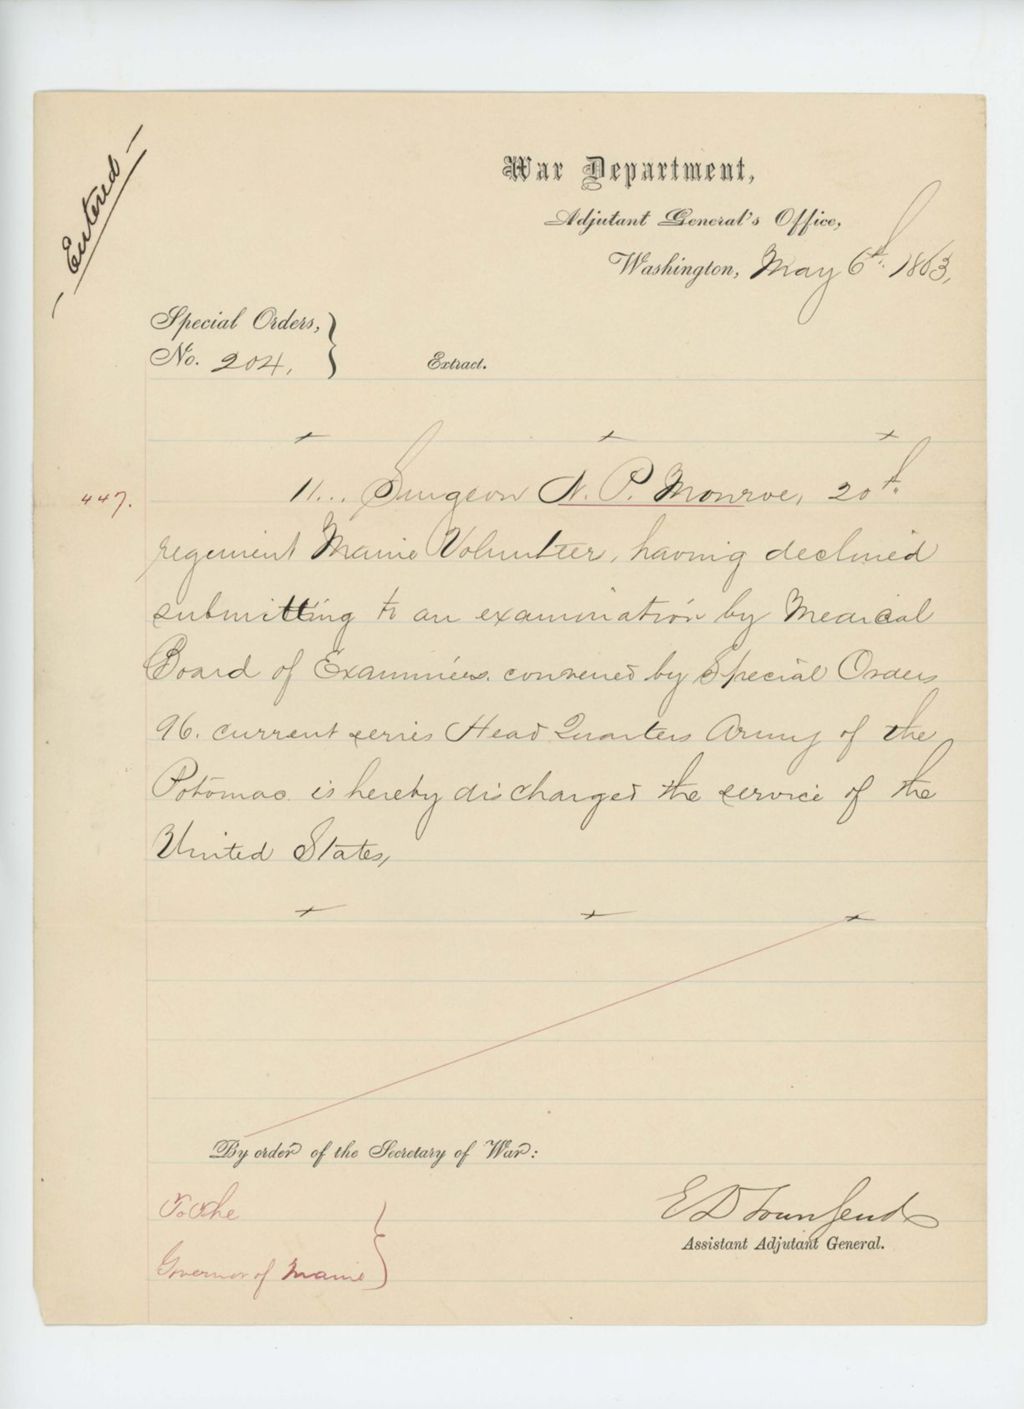 - Entered -
War Department,
Adjutant General's Office,
Washington, May 6th. 1863,
Special Orders,
No. 204,
Extract.
x x x
447.
11... Surgeon N. P. Monroe, 20th.
regiment Maine Volunteer, having declined
submitting to an examination by Medical
Board of Examiners. convened by Special Orders
96. current series Head Quarters Army of the
Potomac is hereby discharged the service of the
United States,
x x x
By order of the Secretary of War:
To The
Governor of Maine
E D Townsend
Assistant Adjutant General.